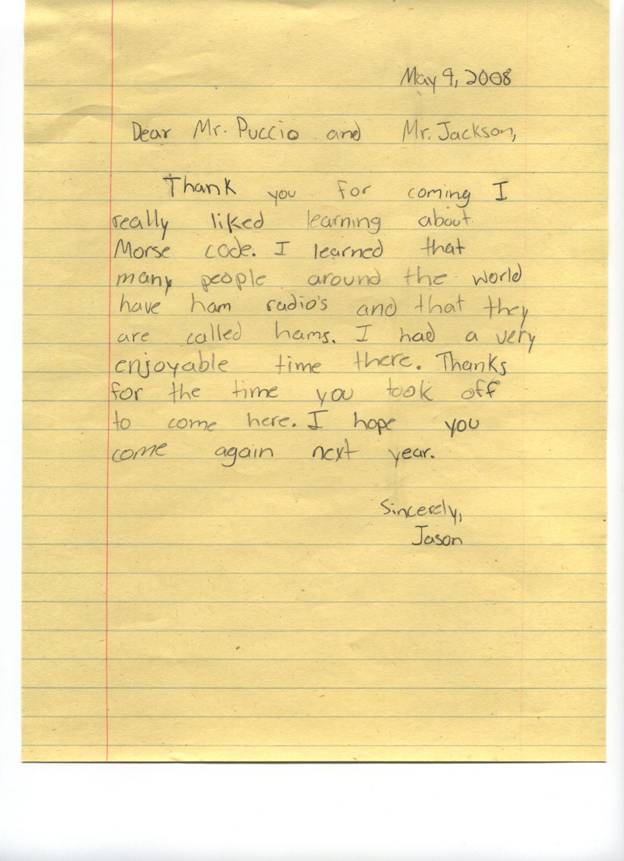 May 9, 2008
Dear Mr. Puccio and Mr. Jackson,
Thank you for coming I
really liked learning about
Morse code. I learned that
many people around the world
have ham radio's and that they
are called hams. I had a very
enjoyable time there. Thanks
for the time you took off
to come here. I hope you
come again next year.
Sincerely,
Jason